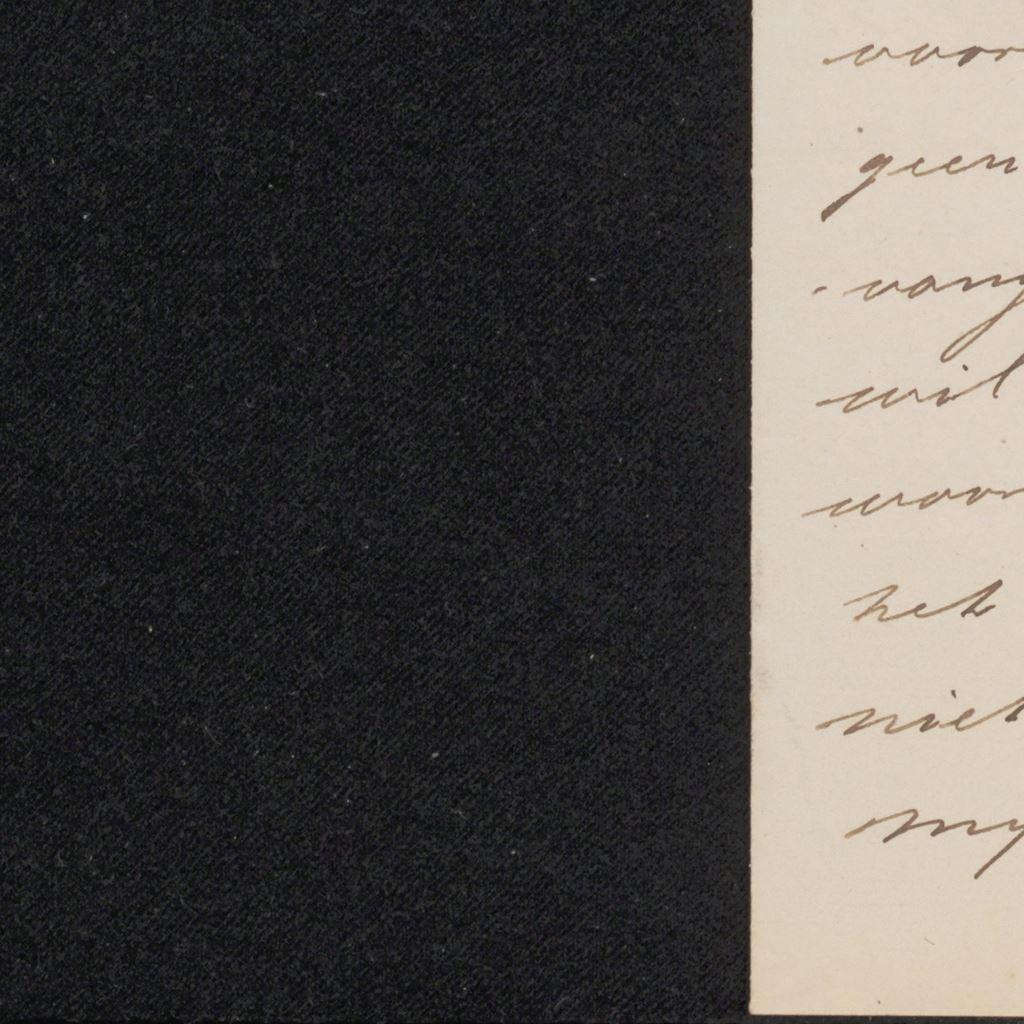 voor
geen
- vang
wil
woor
het
niet
my